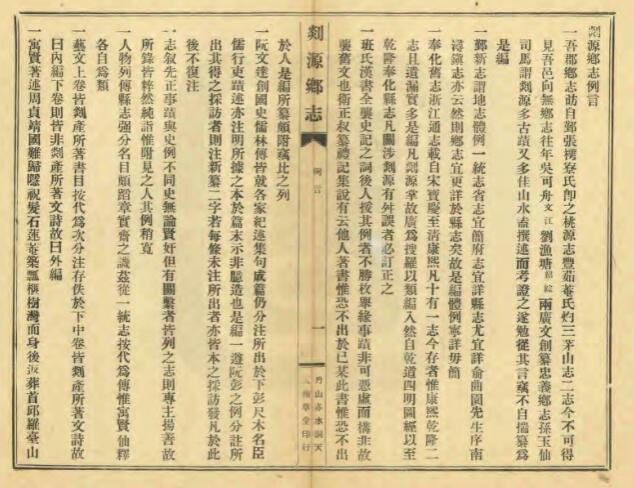 剡源鄉志例言
一吾郡鄉志昉自鄞張櫻寮氏卽之桃源志豐茹菴氏灼三茅山志二志今不可得
見吾邑向無鄉志往年吳可舟文江劉漁塘紹綜兩廣文創纂忠義鄉志孫玉仙
司馬謂剡源多古蹟又多佳山水盍撰述而考證之遂勉從其言竊不自揣纂爲
是編
一鄞新志謂地志體例一統志省志宜簡府志宜詳縣志尤宜詳俞曲園先生序南
潯鎭志亦云然則鄉志宜更詳於縣志矣故是編體例寧詳毋簡
一奉化舊志浙江通志載自宋寶慶至淸康熙凡十有一志今存者惟康熙乾隆二
志且遺漏實多是編凡剡源掌故廣爲搜羅以類編入然自乾道四明圖經以至
乾隆奉化縣志凡關涉剡源有舛誤者必訂正之
一班氏漢書全襲史記之詞後人援其例者不勝枚舉緣事蹟非可憑虛而構非故
襲舊文也衛正叔纂禮記集說有云他人著書惟恐不出於已某此書惟恐不出
於人是編所纂頗附竊比之列
剡源鄉志
例言
一
丹山赤水洞天
一阮文達創國史儒林傳皆就各家紀述集句成篇仍分注所出於下彭尺木名臣
儒行吏蹟述亦注明所據之本於篇末示非臆造也是編一遵阮彭之例分註所
出其得之採訪者則注新纂二字若每條未注所出者亦皆本之採訪發凡於此
後不復注
一志敘先正事蹟與史例不同史無論賢奸但有關繫者皆列之志則專主揚善故
所錄皆粹然純詣惟附見之人其例稍寬
一人物列傳縣志強分名目頗蹈章實齋之譏茲從一統志按代爲傳惟寓賢仙釋
各自爲類
一藝文上卷皆剡產所著書目按代爲次分注存佚於下中卷皆剡產所著詩文故
曰內編下卷則皆非剡產所著文詩故曰外編
一寓賢著述周貞靖國難歸隱祝髮石蓮菴築瓢榧樹灣而身後返葬首邱羅臺山